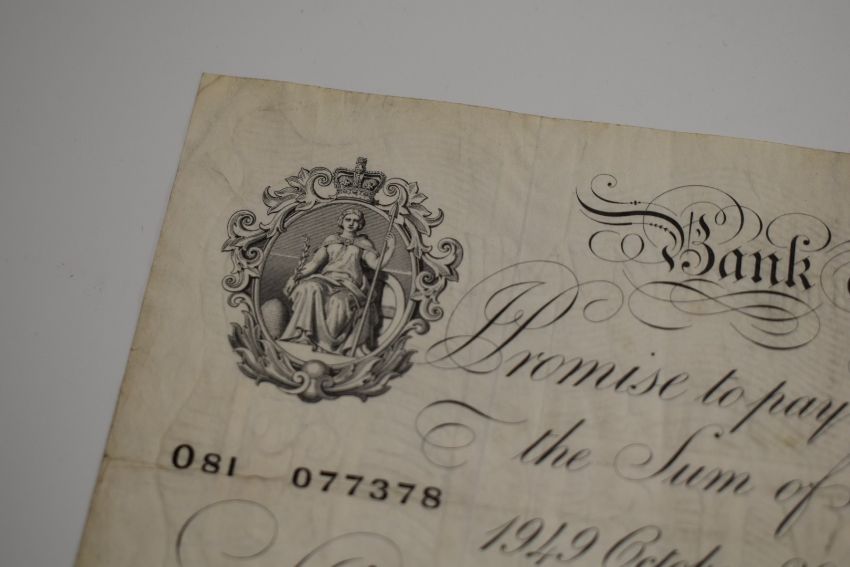 Bank
Promise to pay
the Sum of
O81 077378
1949 October